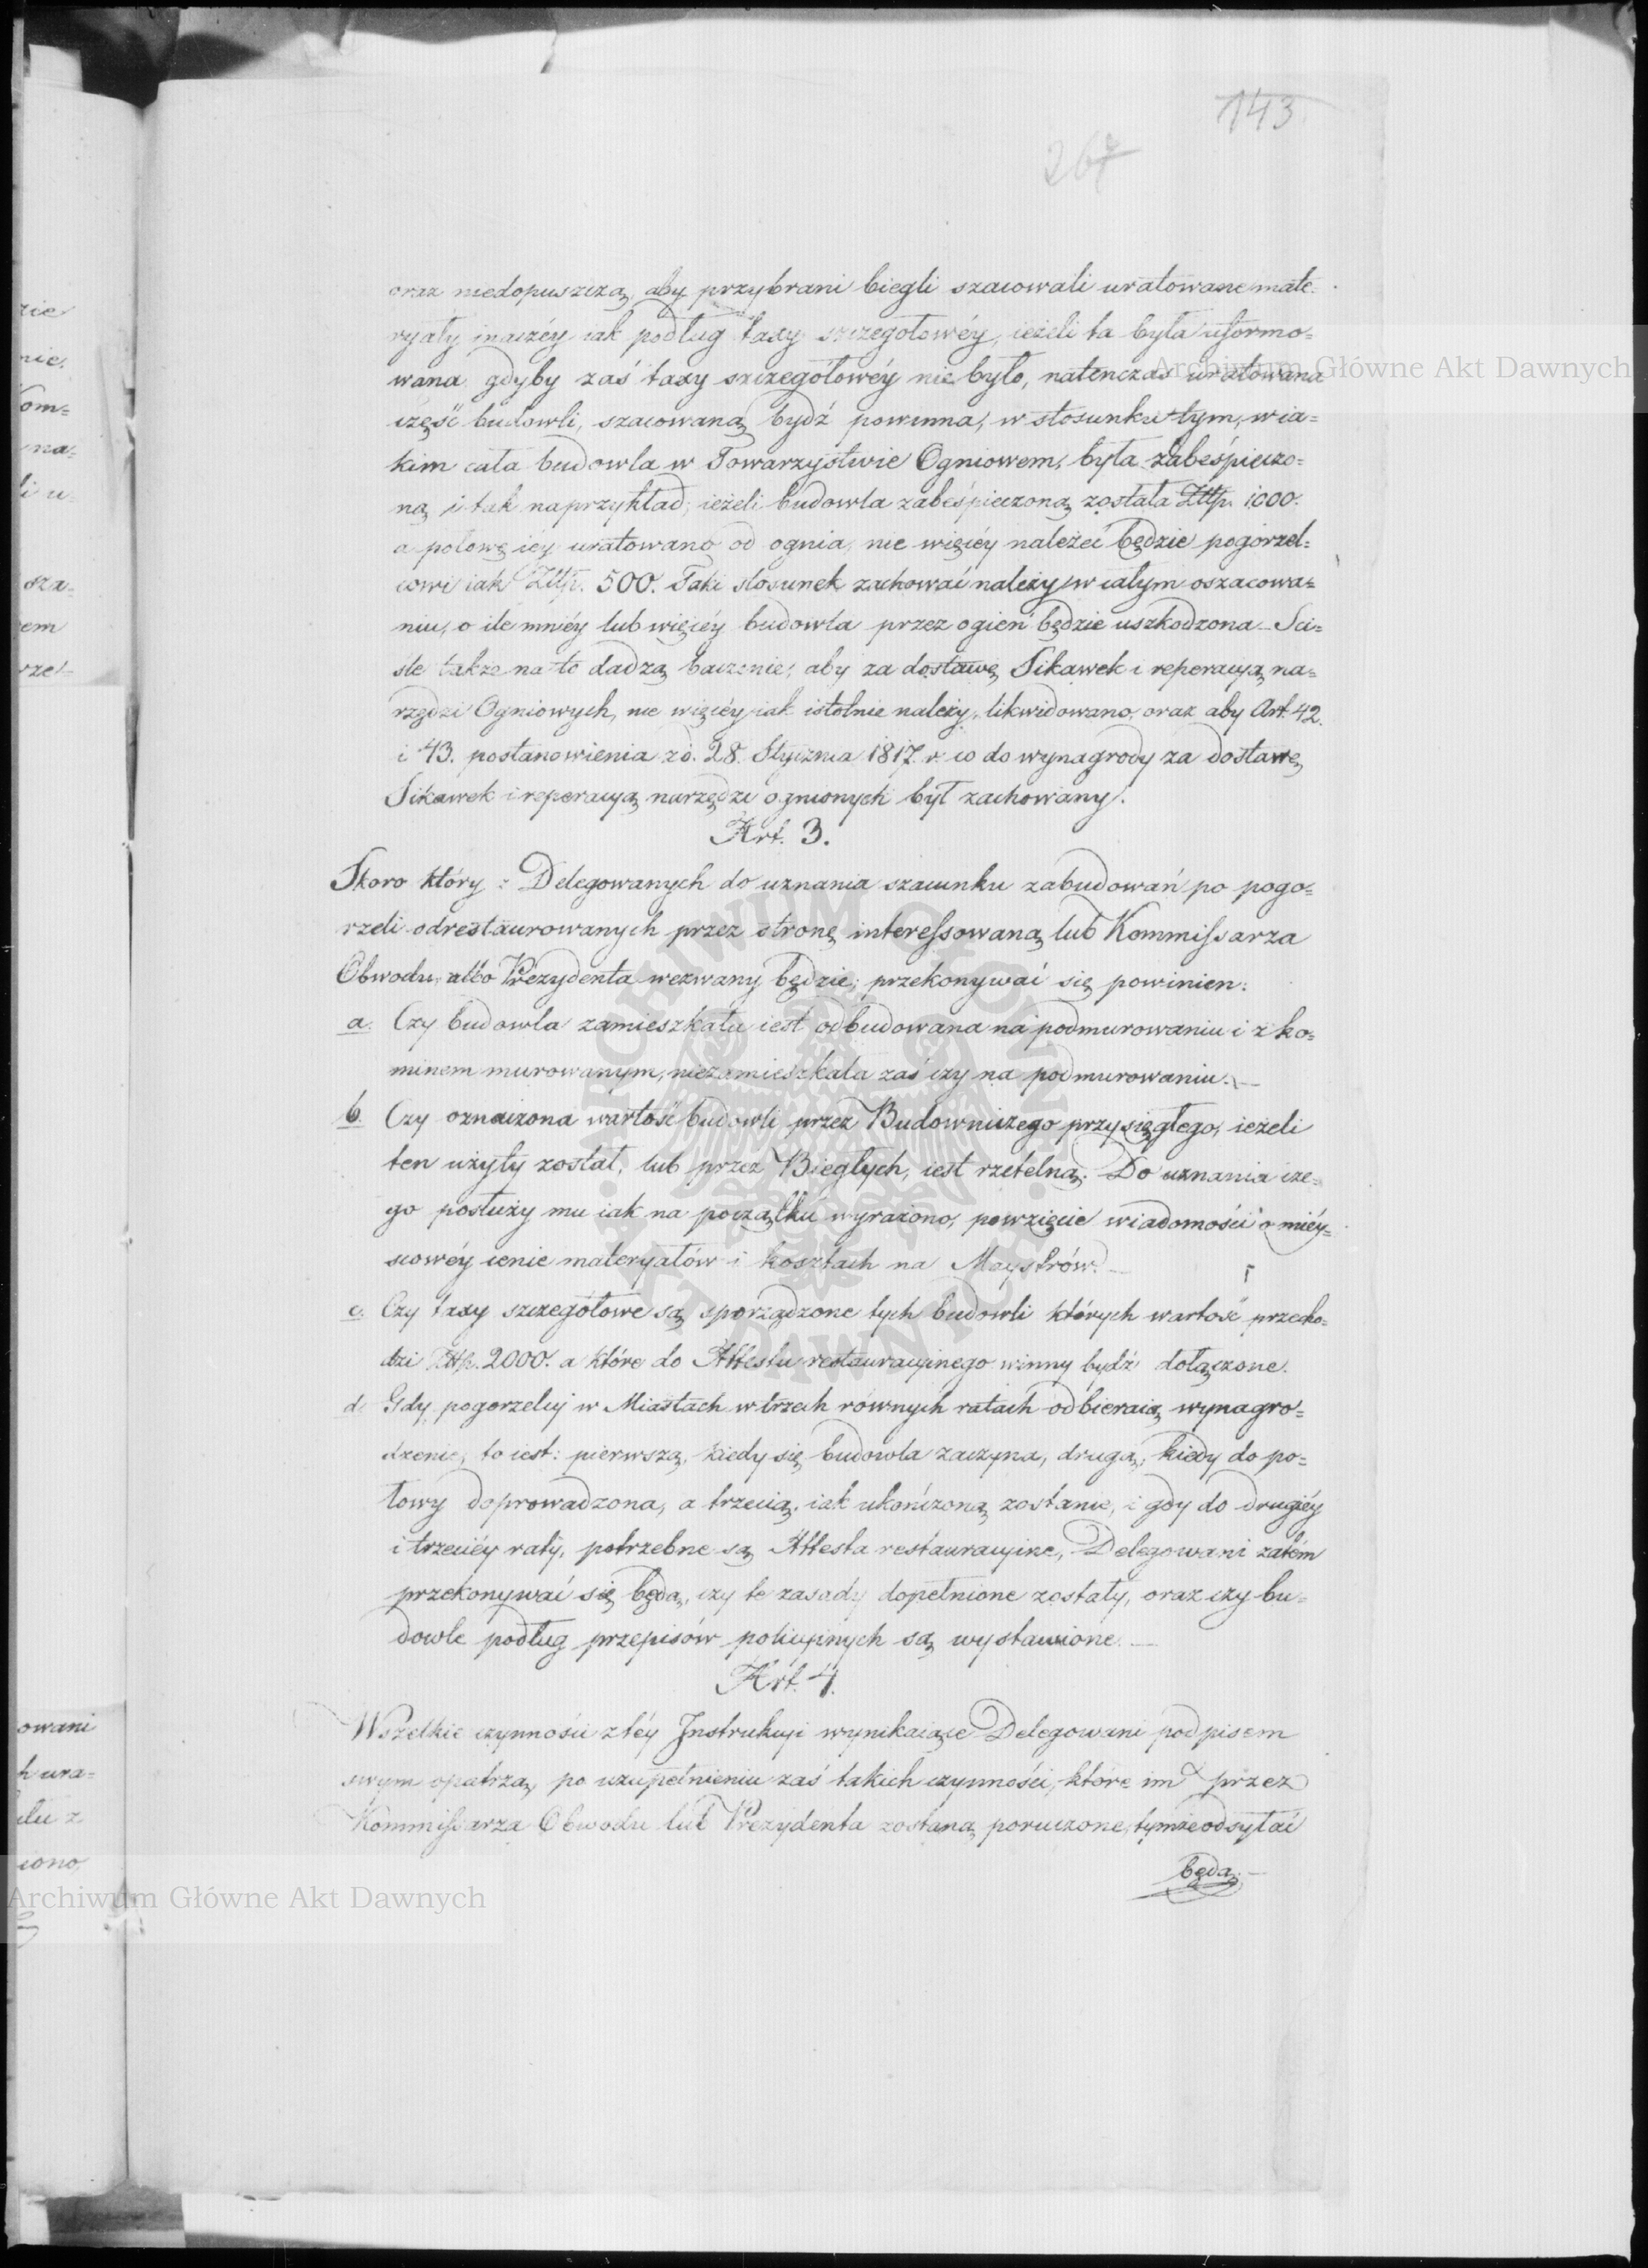 143
267
oraz niedopuszczą, aby przybrani biegli szacowali uratowane mate-
ryały inaczéy iak podług taxy szczegołowéy, ieżeli ta była uformo=
wana gdyby zaś taxy szczegołowéy nie było, natenczas uratowana
część budowli, szacowaną bydź powinna, w stosunku tym, w ia=
kim cała budowla w Towarzystwie Ogniowem, była zabeśpieczo=
ną i tak naprzykład, ieżeli budowla zabeśpieczoną została Złtp. 1000.
a połowę iey uratowano od ognia, nie więcéy należeć będzie pogorzel=
cowi iak Złtp. 500. Taki stosunek zachować należy w całym oszacowa=
niu, o ile mniéy lub więcéy budowla przez ogień będzie uszkodzona. Sci=
śle także na to dadzą baczenie, aby za dostawę Sikawek i reperacyą na=
rzędzi Ogniowych, nie więcéy iak istotnie należy, likwidowano, oraz aby Art. 42.
i 43. postanowienia z d. 28. Stycznia 1817 r. co do wynagrody za dostawę
Sikawek i reperacyą narzędzi ogniowych był zachowany.
Art. 3.
Skoro który z Delegowanych do uznania szacunku zabudowań po pogo=
rzeli odrestaurowanych przez stronę interessowaną lub Kommissarza
Obwodu, albo Prezydenta wezwany będzie, przekonywać się powinien:
a. Czy budowla zamieszkała iest odbudowana na podmurowaniu i z ko=
minem murowanym, niezamieszkała zaś czy na podmurowaniu. —
b. Czy oznaczona wartość budowli przez Budowniczego przysięgłego, ieżeli
ten użyty został, lub przez Biegłych, iest rzetelną. Do uznania cze=
go posłuży mu iak na początku wyrażono, powzięcie wiadomości o miéy=
scowéy cenie materyałów i kosztach na Maystrów. —
c. Czy taxy szczegółowe są sporządzone tych budowli których wartość przecho=
dzi Złtp. 2000. a które do Attestu restauracyinego winny bydź dołączone.
d. Gdy pogorzelcy w Miastach w trzech równych ratach odbieraią wynagro=
dzenie, to iest: pierwszą, kiedy się budowla zaczyna, drugą, kiedy do po=
łowy doprowadzona, a trzecią, iak ukończoną zostanie, i gdy do drugiéy
i trzeciéy raty, potrzebne są Attesta restauracyine, Delegowani zatém
przekonywać się będą, czy te zasady dopełnione zostały, oraz czy bu=
dowle podług przepisów policyinych są wystawione. —
Art. 4.
Wszelkie czynności z téy Instrukcyi wynikaiące Delegowani podpisem
swym opatrzą, po uzupełnieniu zaś takich czynności, które im przez
Kommissarza Obwodu lub Prezydenta zostaną poruczone, tymże odsyłać
będą. —
zie
nie.
Kom=
na=
li u=
sza=
em
rzel
owani
h ura=
iono,
Archiwum Główne Akt Dawnych
Archiwum Główne Akt Dawnych
ARCHIWUM GŁÓWNE AKT DAWNYCH